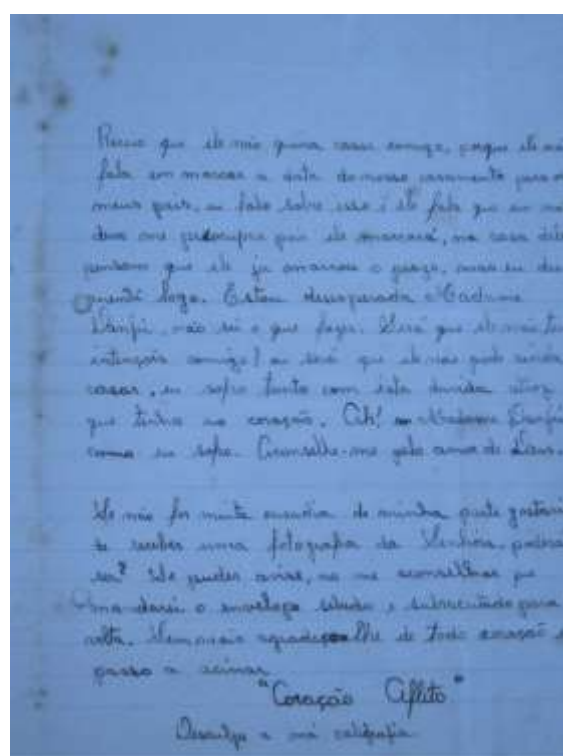 Receio que ele não queira casar comigo, porque ele não
fala em marcar a data do nosso casamento para os
meus pais, eu falo sobre isso e ele fala que eu não
devo me preocupar pois ele marcará, na casa dele
pensam que ele já marcou o prazo, mas eu
logo. Estou desesperada Madame
não sei o que fazer. Será que ele não tem
intenções comigo? ou será que ele não pode ainda
casar, eu sofro tanto com esta duvida atroz
que tenho no coração. Oh! Madame
como eu sofro. Aconselhe-me pelo amor de Deus.
Se não for muita ousadia de minha parte gostaria
de receber uma fotografia da Senhora, poderá
ser? Se puder avise, ao me aconselhar que
mandarei o envelope selado e subscritado para
volta. Sem mais agradeço-lhe de todo coração e
passo a acinar
"Coração Aflito"
Desculpe a má caligrafia